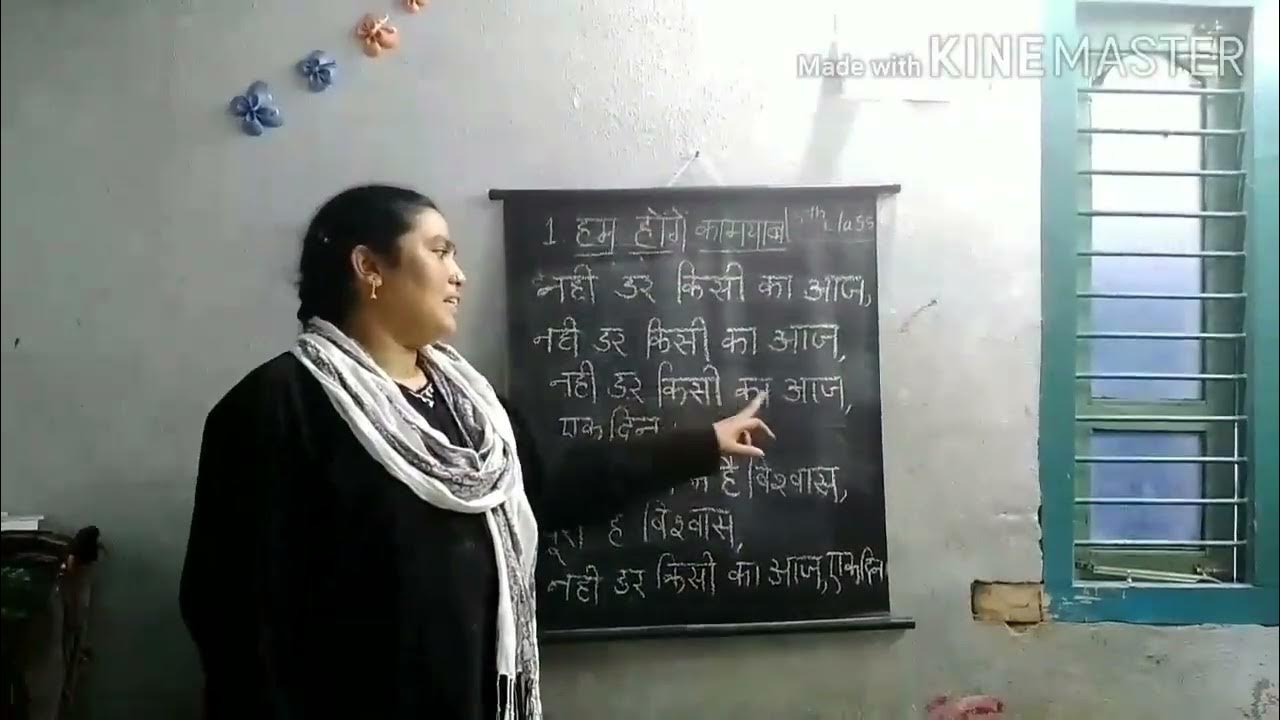 Made with KINEMASTER
1. हम होंगे कामयाब th class
नही डर किसी का आज,
नही डर किसी का आज,
नही डर किसी का आज,
एक दिन
है विश्वास,
है विश्वास,
नही डर किसी का आज, एक दिन